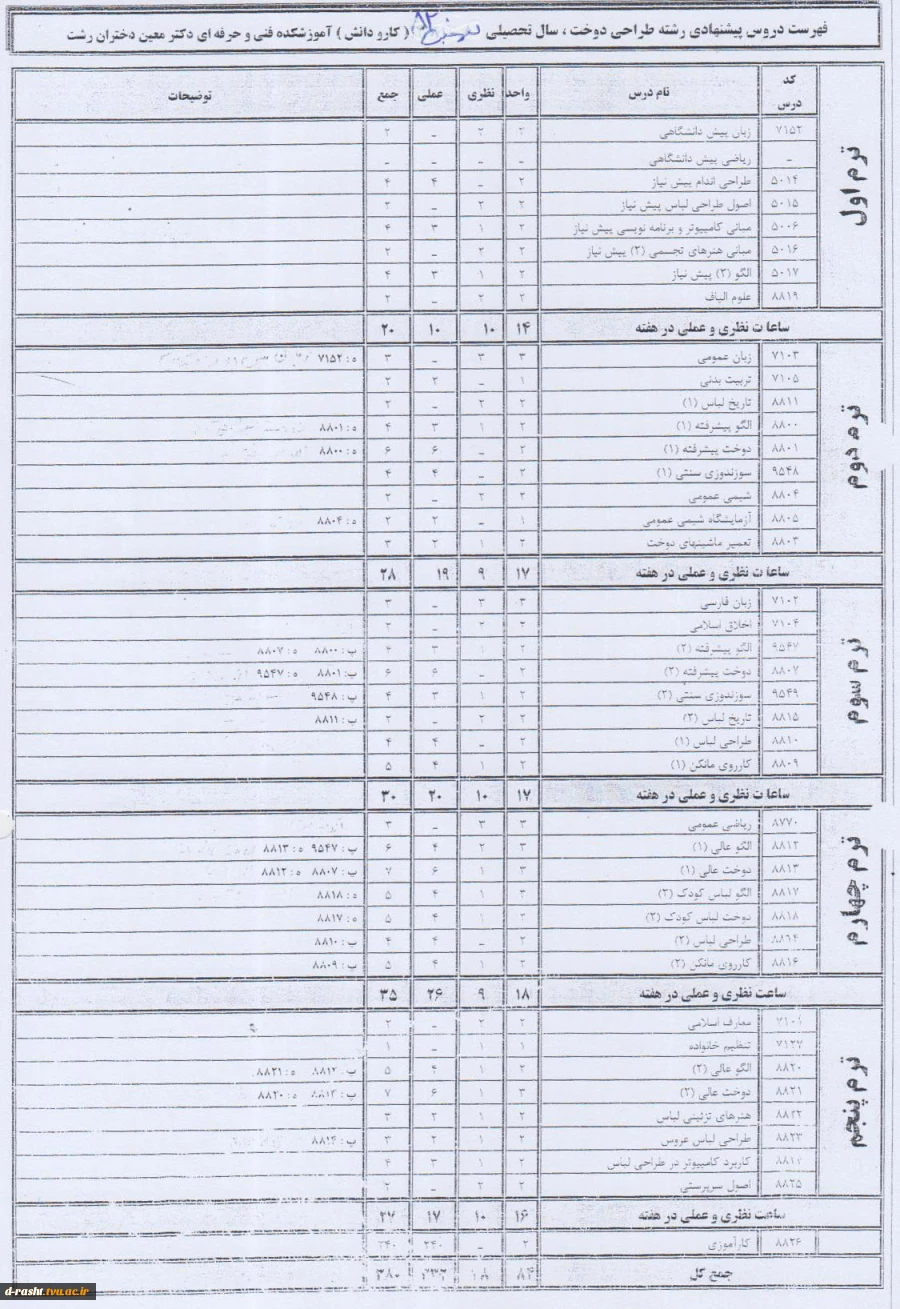 فهرست دروس پیشنهادی رشته طراحی دوخت ، سال تحصیلی ۹۲ ( کارو دانش ) آموزشکده فنی و حرفه ای دکتر معین دختران رشت
کد درس نام درس واحد نظری عملی جمع توضیحات
ترم اول
۷۱۵۲ زبان پیش دانشگاهی ۲ ۲ _ ۲
_ ریاضی پیش دانشگاهی _ _ _ _
۵۰۱۴ طراحی اندام پیش نیاز ۲ _ ۴ ۴
۵۰۱۵ اصول طراحی لباس پیش نیاز ۲ ۲ _ ۲
۵۰۰۶ مبانی کامپیوتر و برنامه نویسی پیش نیاز ۲ ۱ ۳ ۴
۵۰۱۶ مبانی هنرهای تجسمی (۲) پیش نیاز ۲ ۲ _ ۲
۵۰۱۷ الگو (۲) پیش نیاز ۲ ۱ ۳ ۴
۸۸۱۹ علوم الیاف ۲ ۲ _ ۲
ساعات نظری و عملی در هفته ۱۴ ۱۰ ۱۰ ۲۰
ترم دوم
۷۱۰۳ زبان عمومی ۳ ۳ _ ۳ ه : ۷۱۵۲
۷۱۰۵ تربیت بدنی ۱ _ ۲ ۲
۸۸۱۱ تاریخ لباس (۱) ۲ ۲ _ ۲
۸۸۰۰ الگو پیشرفته (۱) ۲ ۱ ۳ ۴ ه : ۸۸۰۱
۸۸۰۱ دوخت پیشرفته (۱) ۲ _ ۶ ۶ ه : ۸۸۰۰
۹۵۴۸ سوزندوزی سنتی (۱) ۲ _ ۴ ۴
۸۸۰۴ شیمی عمومی ۲ ۲ _ ۲
۸۸۰۵ آزمایشگاه شیمی عمومی ۱ _ ۲ ۲ ه : ۸۸۰۴
۸۸۰۳ تعمیر ماشینهای دوخت ۲ ۱ ۲ ۳
ساعات نظری و عملی در هفته ۱۷ ۹ ۱۹ ۲۸
ترم سوم
۷۱۰۲ زبان فارسی ۳ ۳ _ ۳
۷۱۰۴ اخلاق اسلامی ۲ ۲ _ ۲
۹۵۴۷ الگو پیشرفته (۲) ۲ ۱ ۳ ۴ پ : ۸۸۰۰ ه : ۸۸۰۷
۸۸۰۷ دوخت پیشرفته (۲) ۲ _ ۶ ۶ پ : ۸۸۰۱ ه : ۹۵۴۷
۹۵۴۹ سوزندوزی سنتی (۲) ۲ ۱ ۳ ۴ پ : ۹۵۴۸
۸۸۱۵ تاریخ لباس (۲) ۲ ۲ _ ۲ پ : ۸۸۱۱
۸۸۱۰ طراحی لباس (۱) ۲ _ ۴ ۴
۸۸۰۹ کارروی مانکن (۱) ۲ ۱ ۴ ۵
ساعات نظری و عملی در هفته ۱۷ ۱۰ ۲۰ ۳۰
ترم چهارم
۸۷۷۰ ریاضی عمومی ۳ ۳ _ ۳
۸۸۱۲ الگو عالی (۱) ۳ ۲ ۴ ۶ پ : ۹۵۴۷ ه : ۸۸۱۳
۸۸۱۳ دوخت عالی (۱) ۳ ۱ ۶ ۷ پ : ۸۸۰۷ ه : ۸۸۱۲
۸۸۱۷ الگو لباس کودک (۲) ۳ ۱ ۴ ۵ ه : ۸۸۱۸
۸۸۱۸ دوخت لباس کودک (۲) ۳ ۱ ۴ ۵ ه : ۸۸۱۷
۸۸۱۴ طراحی لباس (۲) ۲ _ ۴ ۴ پ : ۸۸۱۰
۸۸۱۶ کارروی مانکن (۲) ۲ ۱ ۴ ۵ پ : ۸۸۰۹
ساعت نظری و عملی در هفته ۱۸ ۹ ۲۶ ۳۵
ترم پنجم
۷۱۰۱ معارف اسلامی ۲ ۲ _ ۲
۷۱۲۷ تنظیم خانواده ۱ ۱ _ ۱
۸۸۲۰ الگو عالی (۲) ۲ ۱ ۴ ۵ پ : ۸۸۱۲ ه : ۸۸۲۱
۸۸۲۱ دوخت عالی (۲) ۳ ۱ ۶ ۷ پ : ۸۸۱۳ ه : ۸۸۲۰
۸۸۲۲ هنرهای تزئینی لباس ۲ ۱ ۲ ۳
۸۸۲۳ طراحی لباس عروس ۲ ۱ ۲ ۳ پ : ۸۸۱۴
کاربرد کامپیوتر در طراحی لباس ۲ ۱ ۳ ۴
۸۸۲۵ اصول سرپرستی ۲ ۲ _ ۲
ساعت نظری و عملی در هفته ۱۶ ۱۰ ۱۷ ۲۷
۸۸۲۶ کارآموزی ۲ _ ۲۴۰ ۲۴۰
جمع کل ۸۴
d-rasht.tvu.ac.ir